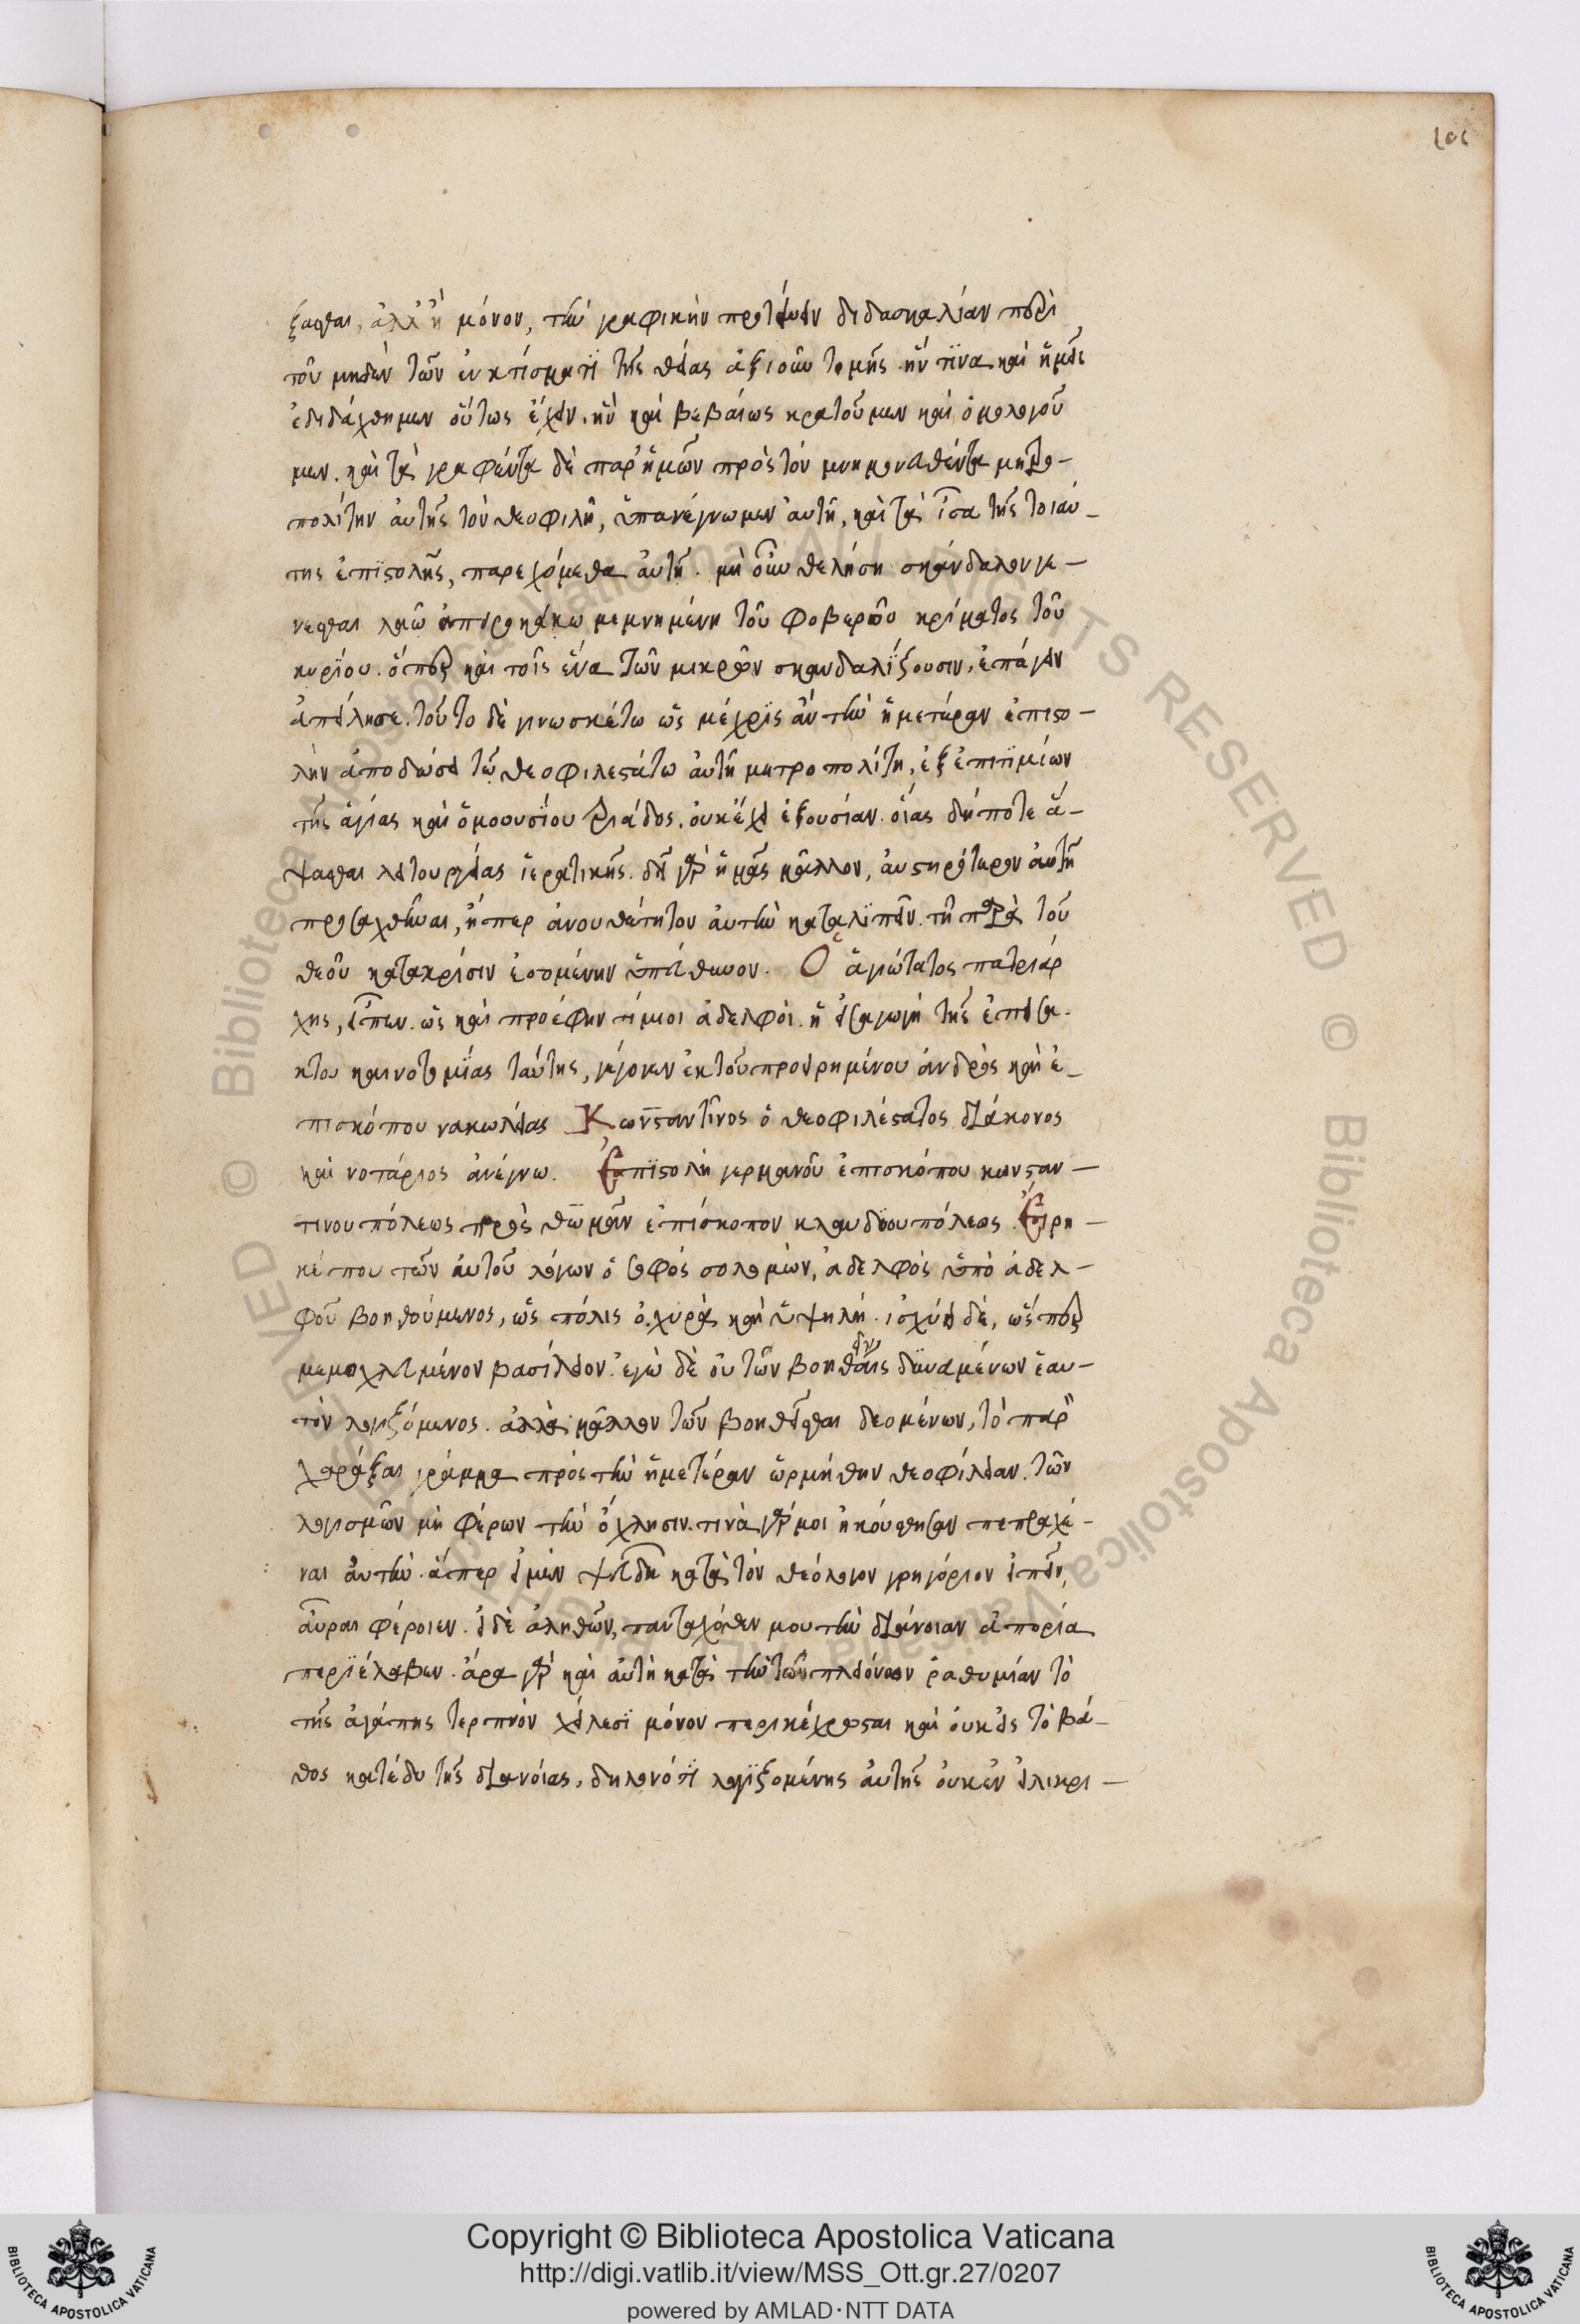 101
ξασθαι, ἀλλ' ἢ μόνον, τὴν γραφικὴν προτείνειν διδασκαλίαν περὶ
τοῦ μηδὲν τῶν ἐν κτίσματι τῆς θείας ἀξιοῦν τιμῆς. ἥν τινα καὶ ἡμεῖς
ἐδιδάχθημεν οὕτως ἔχειν. ἣν καὶ βεβαίως κρατοῦμεν καὶ ὁμολογοῦ
μεν. καὶ τὰ γραφέντα δὲ παρ' ἡμῶν πρὸς τὸν μνημονευθέντα μητρο-
πολίτην αὐτῆς τὸν θεοφιλῆ, ὑπανέγνωμεν αὐτῆ, καὶ τὰ ἶσα τῆς τοιαύ-
της ἐπιστολῆς, παρεχόμεθα αὐτῆ. μὴ οὖν θελήση σκάνδαλον γε-
νέσθαι λαῶ ἀπειροκάκω μεμνημένη τοῦ φοβεροῦ κρίματος τοῦ
κυρίου. ὅπερ καὶ τοῖς ἕνα τῶν μικρῶν σκανδαλίζουσιν, ἐπάγειν
ἀπείλησε. τοῦτο δὲ γινωσκέτω ὡς μέχρις ἂν τὴν ἡμετέραν ἐπιστο-
λὴν ἀποδώσει τῶ θεοφιλεστάτω αὐτῆ μητροπολίτη, ἐξ ἐπιτιμίων
τῆς ἁγίας καὶ ὁμοουσίου τριάδος, οὐκ ἔχει ἐξουσίαν οἵας δήποτε ἅ-
ψασθαι λειτουργείας ἱερατικῆς. δεῖ γὰρ ἡμᾶς μᾶλλον, αὐστηρότερον αὐτῆ
προσαχθῆναι, ἤπερ ἀνουθέτητον αὐτὴν καταλιπεῖν τῆ παρὰ τοῦ
θεοῦ κατακρίσιν ἐσομένην ὑπεύθυνον. Ὁ ἁγιώτατος πατριάρ
χης, εἶπεν. ὡς καὶ προέφην τίμιοι ἀδελφοὶ. ἡ εἰσαγωγὴ τῆς ἐπεισα-
κτου καινοτομίας ταύτης, γέγονεν ἐκ τοῦ προειρημένου ἀνδρὸς καὶ ἐ-
πισκόπου νακωλείας Κωνσταντῖνος ὁ θεοφιλέστατος διάκονος
καὶ νοτάριος ἀνέγνω. Ἐπιστολὴ γερμανοῦ ἐπισκόπου κωνσταν-
τινουπόλεως πρὸς θωμᾶν ἐπίσκοπον κλαυδιουπόλεως. Εἴρη-
κέ που τῶν αὐτοῦ λόγων ὁ σοφὸς σολομὼν, ἀδελφὸς ὑπὸ ἀδελ-
φοῦ βοηθούμενος, ὡς πόλις ὀχυρὰ καὶ ὑψηλὴ. ἰσχύει δὲ, ὥσπερ
μεμοχλευμένον βασίλειον. ἐγὼ δὲ οὐ τῶν βοηθεῖν δυναμένων ἑαυ-
τὸν λογιζόμενος. ἀλλὰ μᾶλλον τῶν βοηθεῖσθαι δεομένων, τὸ παρὸν
χαράξαι γράμμα πρὸς τὴν ἡμετέραν ὡρμήθην θεοφίλειαν. τῶν
λογισμῶν μὴ φέρων τὴν ὄχλησιν. τινὰ γάρ μοι ἠκούσθησαν πεπραχέ-
ναι αὐτὴν. ἅπερ εἰ μὲν ψευδῆ κατὰ τὸν θεόλογον γρηγόριον εἰπεῖν,
αὖραι φέροιεν. εἰ δὲ ἀληθῶν, πανταχόθεν μου τὴν διάνοιαν ἀπορία
περιέλαβεν. ἄρα γὰρ καὶ αὐτὴ κατὰ τὴν τῶν πλειόνων ῥαθυμίαν τὸ
τῆς ἀγάπης τερπνὸν χείλεσι μόνον περικέχρωσται καὶ οὐκ εἰς τὸ βά-
θος κατέδυ τῆς διανοίας, δηλονότι λογιζομένης αὐτῆς οὐκ ἐν εἰλικρι-
Copyright © Biblioteca Apostolica Vaticana
http://digi.vatlib.it/view/MSS_Ott.gr.27/0207
powered by AMLAD·NTT DATA